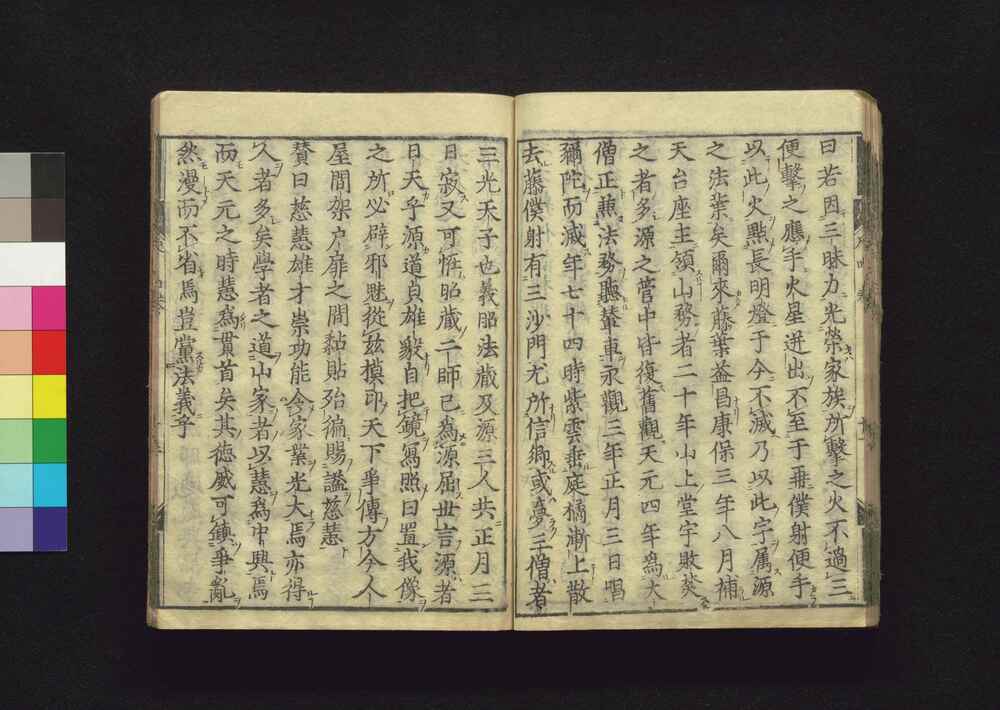 曰若因三昧力光榮家族所擊之火不過三
便擊之應手火星迸出不至于再僕射便手
以此火點長明燈于今不滅乃以此字属源
之法葉矣爾來藤葉益昌康保三年八月補
天台座主領山務者二十年山上堂宇敗焚
之者多源之管中皆復舊觀天元四年為大
僧正兼法務聽輦車永觀三年正月三日唱
彌陀而滅年七十四時紫雲垂庭橘漸上散
去藤僕射有三沙門尤所信鄉或夢三僧者
三光天子也義昭法藏及源三人共正月三
日寂又可恠昭藏二師已為源屈世言源者
日天乎源道貞雄毅自把鏡寫照曰置我像
之所必辟邪魅從茲摸印天下爭傳方今人
屋間架户扉之間黏貼殆徧賜諡慈慧
贊曰慈慧雄才崇功能令家業光大焉亦得
久者多矣學者之道山家者以慧為中興焉
而天元之時慧為貫首矣其德威可鎮爭亂
然漫而不省焉豈黨法義乎